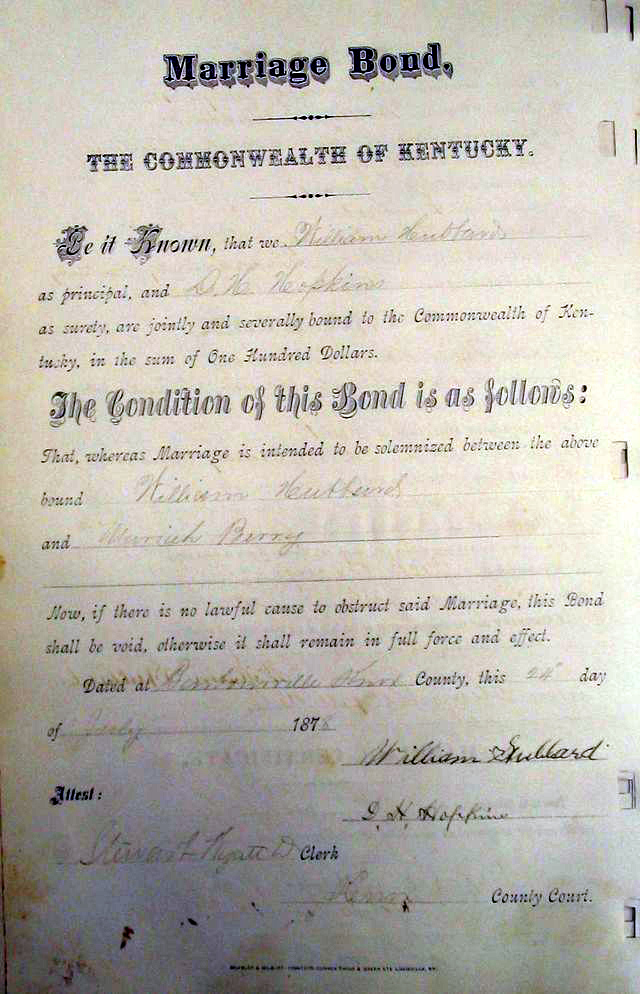 Marriage Bond,
THE COMMONWEALTH OF KENTUCKY.
Be it Known, that we William Hubbard
as principal, and D. H. Hopkins
as surety, are jointly and severally bound to the Commonwealth of Ken-
tucky, in the sum of One Hundred Dollars.
The Condition of this Bond is as follows:
That, whereas Marriage is intended to be solemnized between the above
bound William Hubbard
and Berry
Now, if there is no lawful cause to obstruct said Marriage, this Bond
shall be void, otherwise it shall remain in full force and effect.
Dated at Barbourville Knox County, this 24" day
of July 1878
William Hubbard
D. H. Hopkins
Attest:
Clerk
Knox County Court.